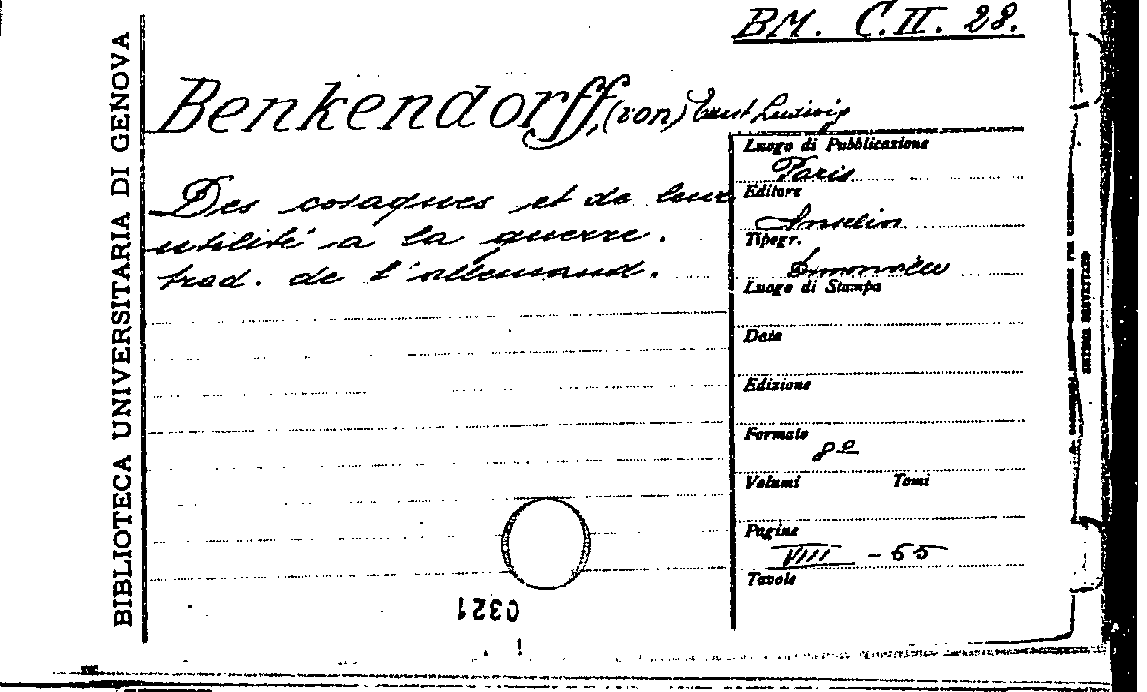 BM. C.II. 28.
BIBLIOTECA UNIVERSITARIA DI GENOVA
Benkendorff, (von) Ludwig
Des cosaques et de leur
utilité a la guerre.
trad. de l'allemand.
Luogo di Pubblicazione
Paris
Editore
Anselin
Tipogr.
Luogo di Stampa
Data
Edizione
Formato
8º
Volumi Tomi
Pagine
VIII - 65
Tavole
0321